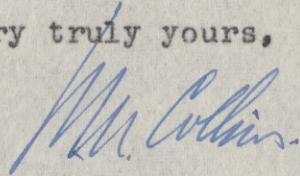 ry truly yours,
M. Collins.